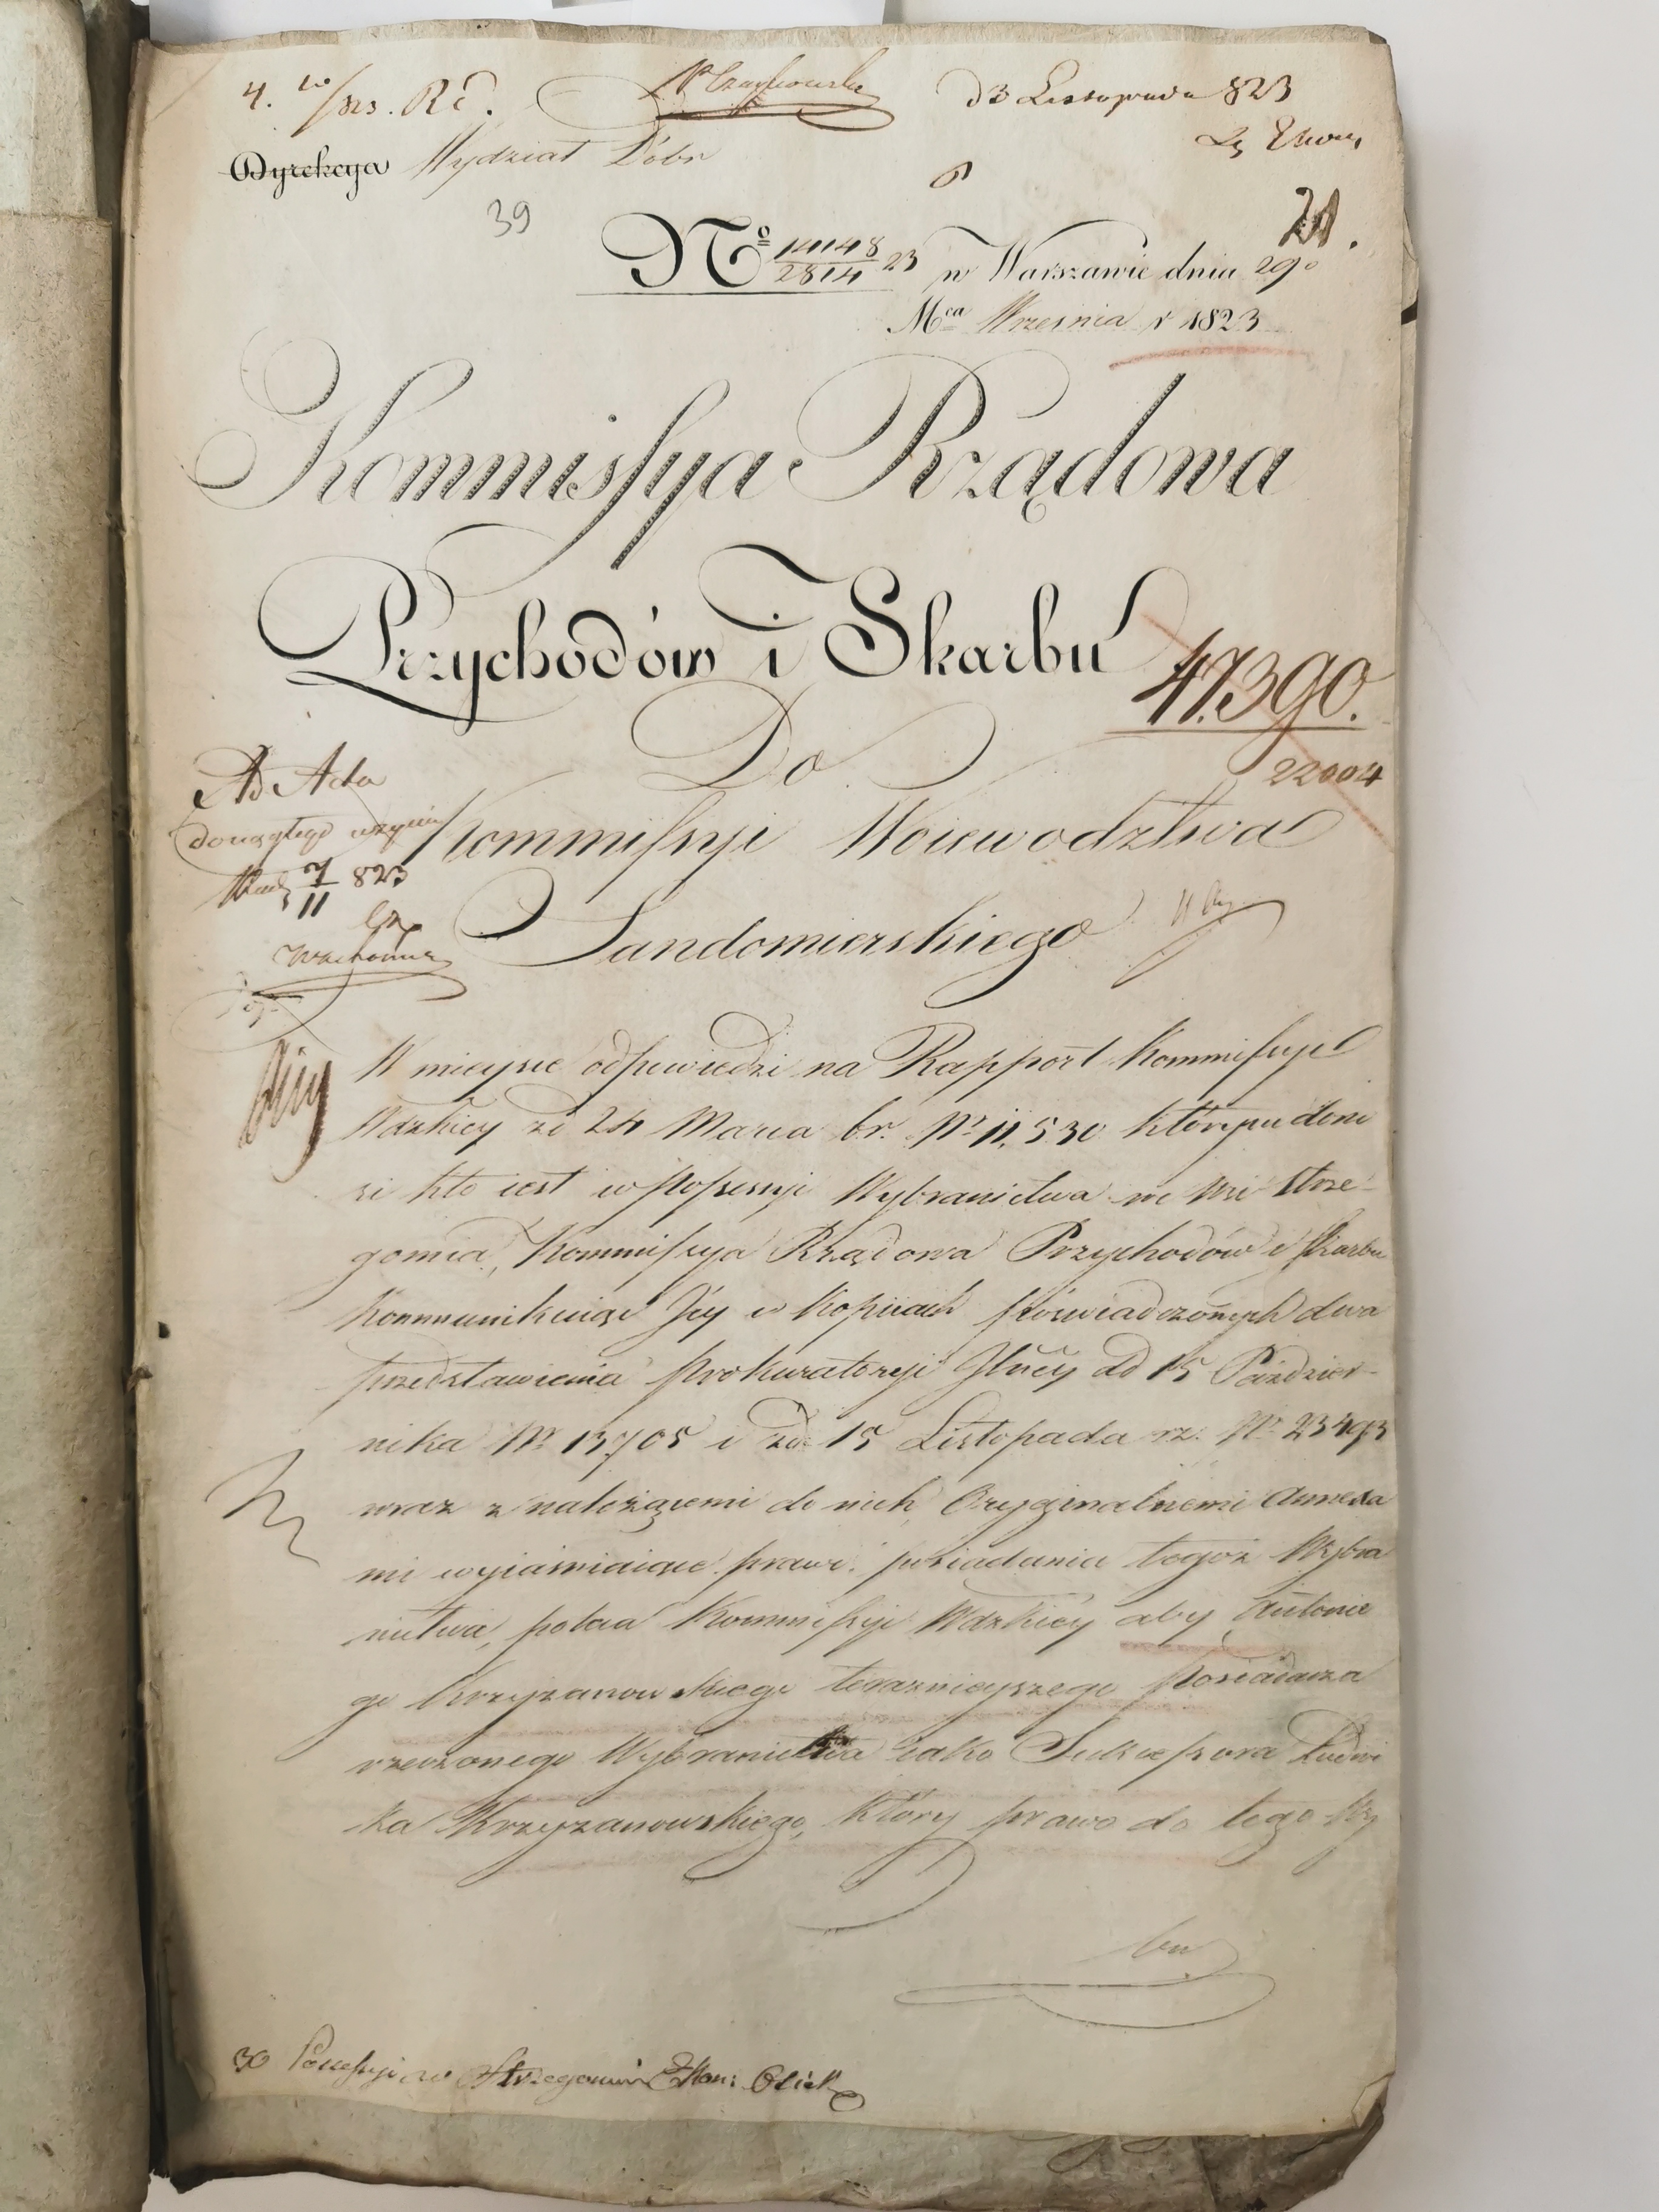 d 3 Listopada 823
Dyrekcya Wydział Dóbr
39
No 14148/2814 23 w Warszawie dnia 29o
Mca Wrzesnia r 1823
Kommissya Rządowa
Przychodów i Skarbu
47390.
22004
Do
Ad Acta
Kommissyi Woiewodztwa
7/11 823
Sandomierskiego
W mieysce odpowiedzi na Rapport Kommissyi
Wdzkiey zd 24 Marca br. Nr 11,530 którym dono
si kto iest w Possessyi Wybranictwa we Wsi Strze-
gomia, Kommissya Rządowa Przychodów i Skarbu
Kommunikuiąc Jey w Kopiiach poswiadczonych dwa
przedstawienia Prokuratoryi Glney zd 15 Paździer-
nika Nr 13705 i zd 15 Listopada rz. Nr 23493
wraz z należącemi do nich Oryginalnemi Annexa
mi wyiaśniaiące prawo posiadania tegoż Wybra
nictwa, poleca Kommissyi Wdzkiey aby Antonie
go Krzyzanowskiego teraznieyszego Posiadacza
rzeczonego Wybranictwa iako Sukcessora Ludwi
ka Krzyzanowskiego, który prawo do tego Wy
30 Possessyi w Strzegomiu Ekon: Osiek